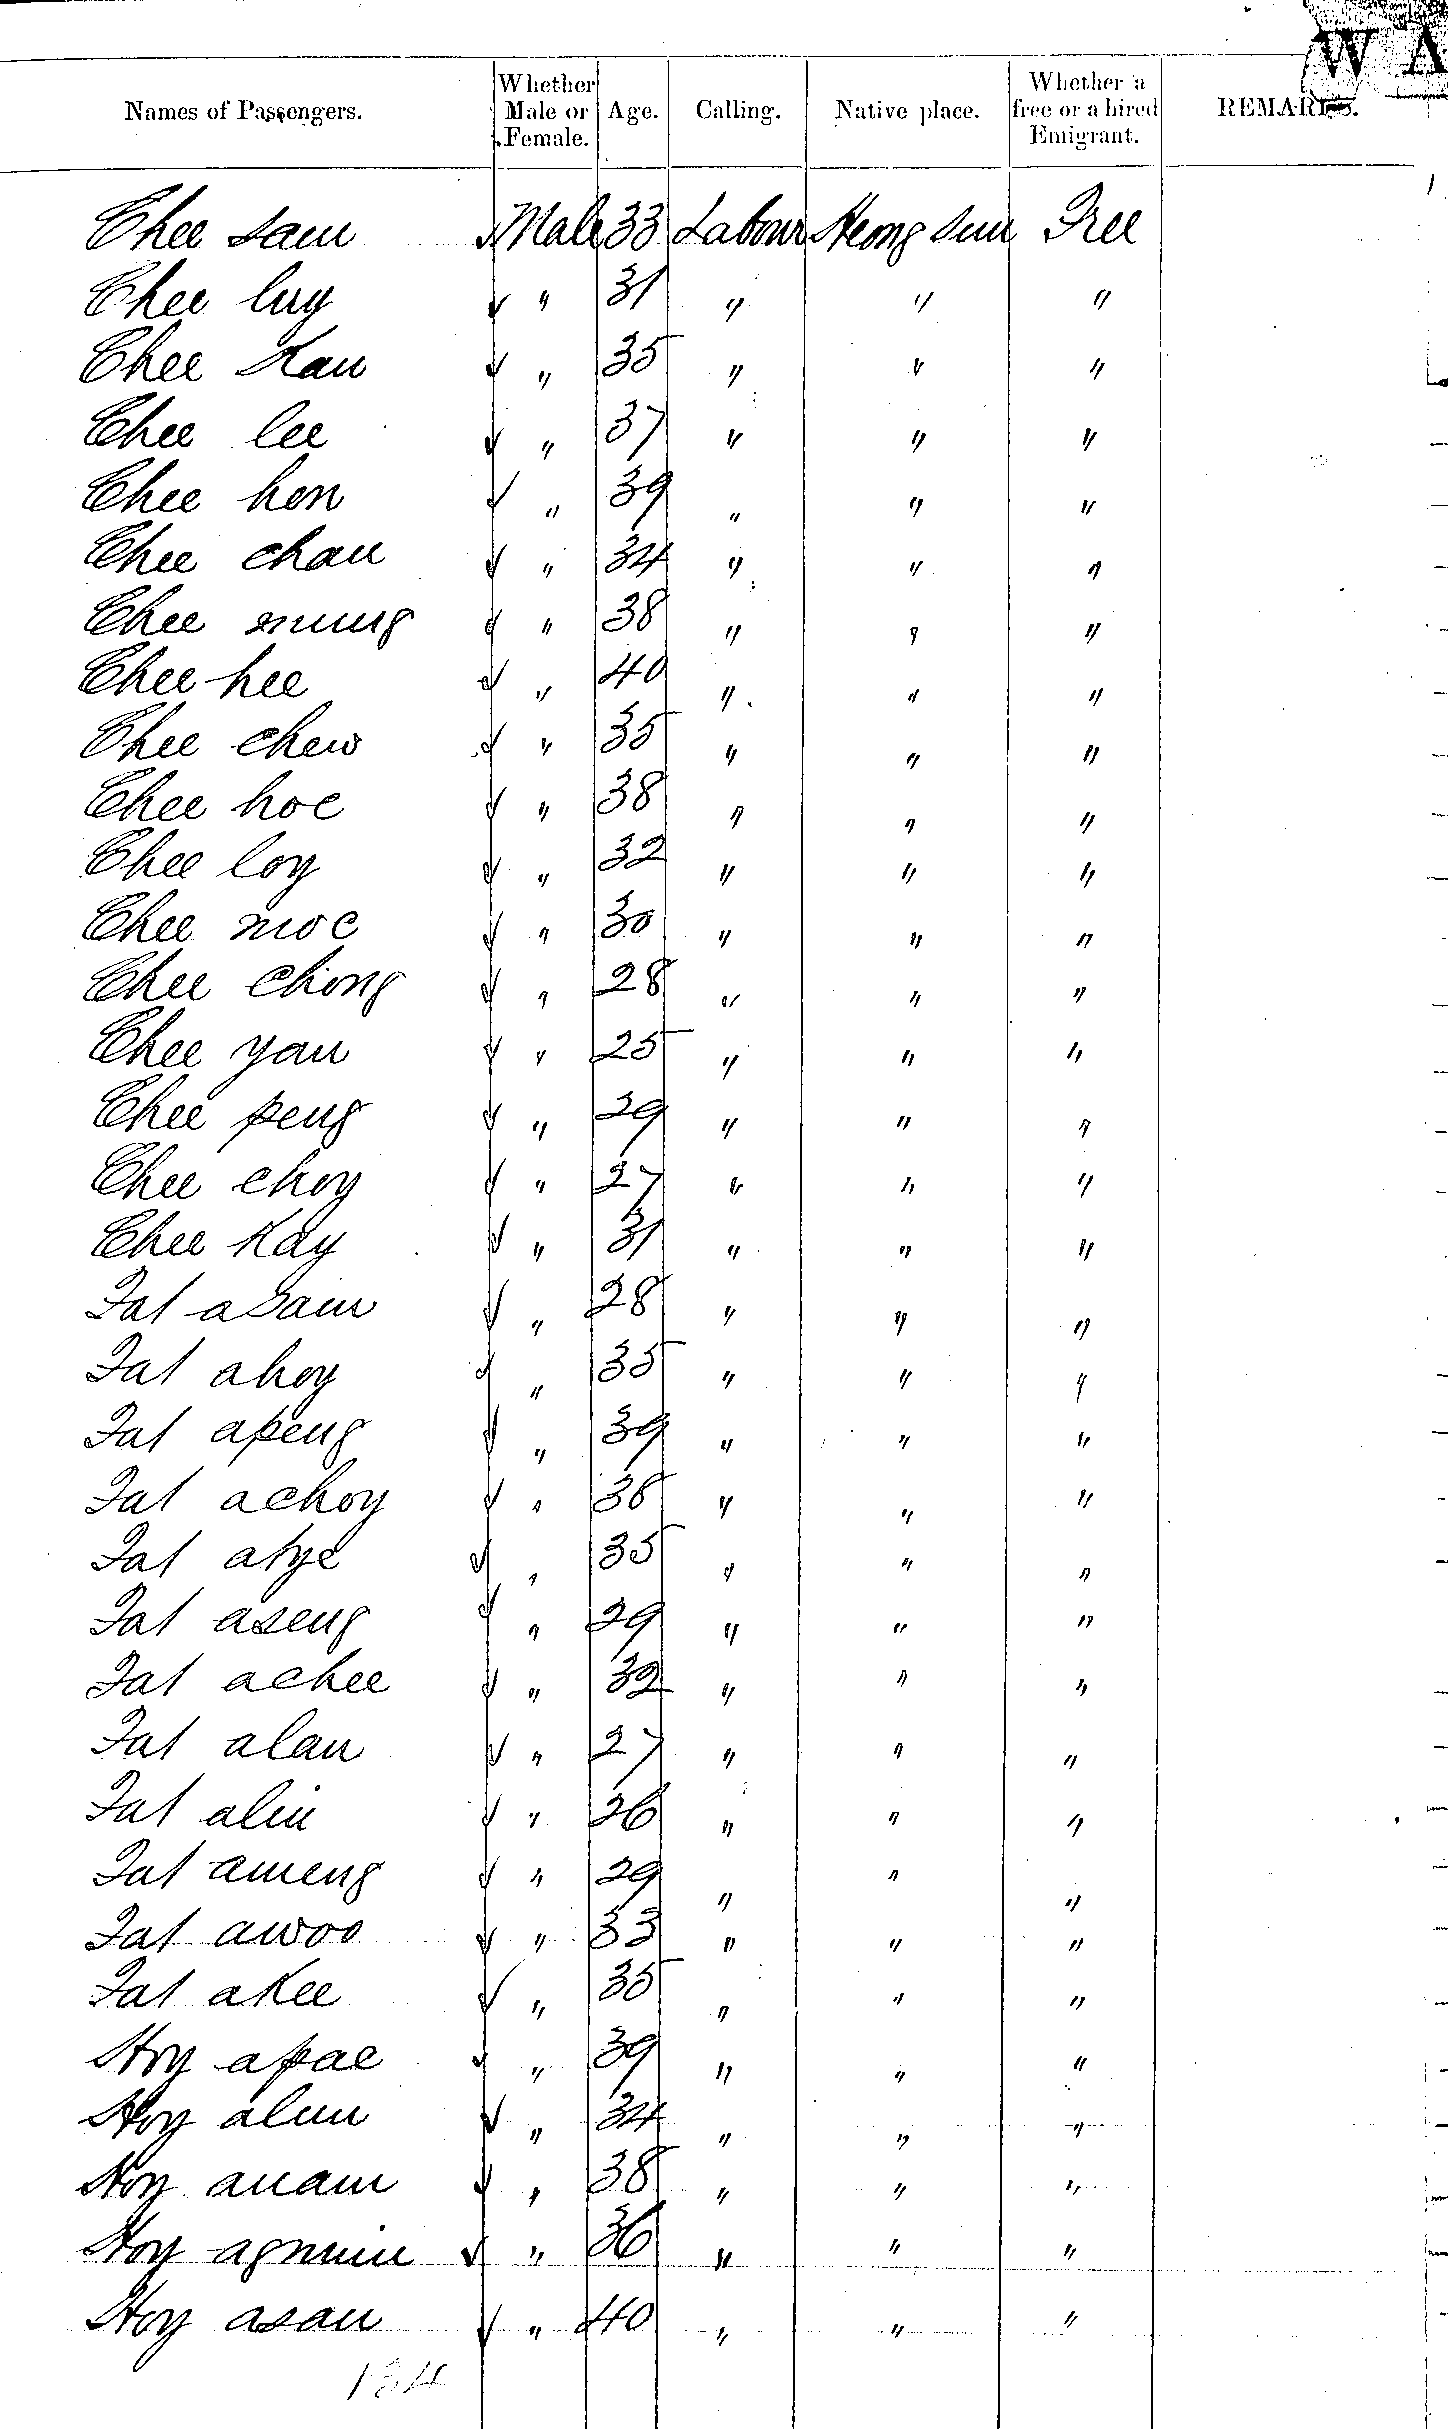 WA
Names of Passengers. Whether Male or Female. Age. Calling. Native place. Whether a free or a hired Emigrant. REMARKS.
Chee sam Male 33 Labour Heong sun Free
Chee luy " 31 " " "
Chee Kau " 35 " " "
Chee lee " 37 " " "
Chee hon " 39 " " "
Chee chau " 34 " " "
Chee mung " 38 " " "
Chee hee " 40 " " "
Chee chew " 35 " " "
Chee hoe " 38 " " "
Chee loy " 32 " " "
Chee moe " 30 " " "
Chee Chong " 28 " " "
Chee yau " 25 " " "
Chee peng " 29 " " "
Chee choy " 27 " " "
Chee Kay " 31 " " "
Fat asam " 28 " " "
Fat ahoy " 35 " " "
Fat apeng " 39 " " "
Fat achoy " 38 " " "
Fat atye " 35 " " "
Fat aseng " 29 " " "
Fat achee " 32 " " "
Fat alau " 27 " " "
Fat alin " 26 " " "
Fat ameng " 29 " " "
Fat awoo " 33 " " "
Fat aKee " 35 " " "
Hoy apae " 39 " " "
Hoy alum " 34 " " "
Hoy anam " 38 " " "
Hoy " 36 " " "
Hoy asau " 40 " " "
134